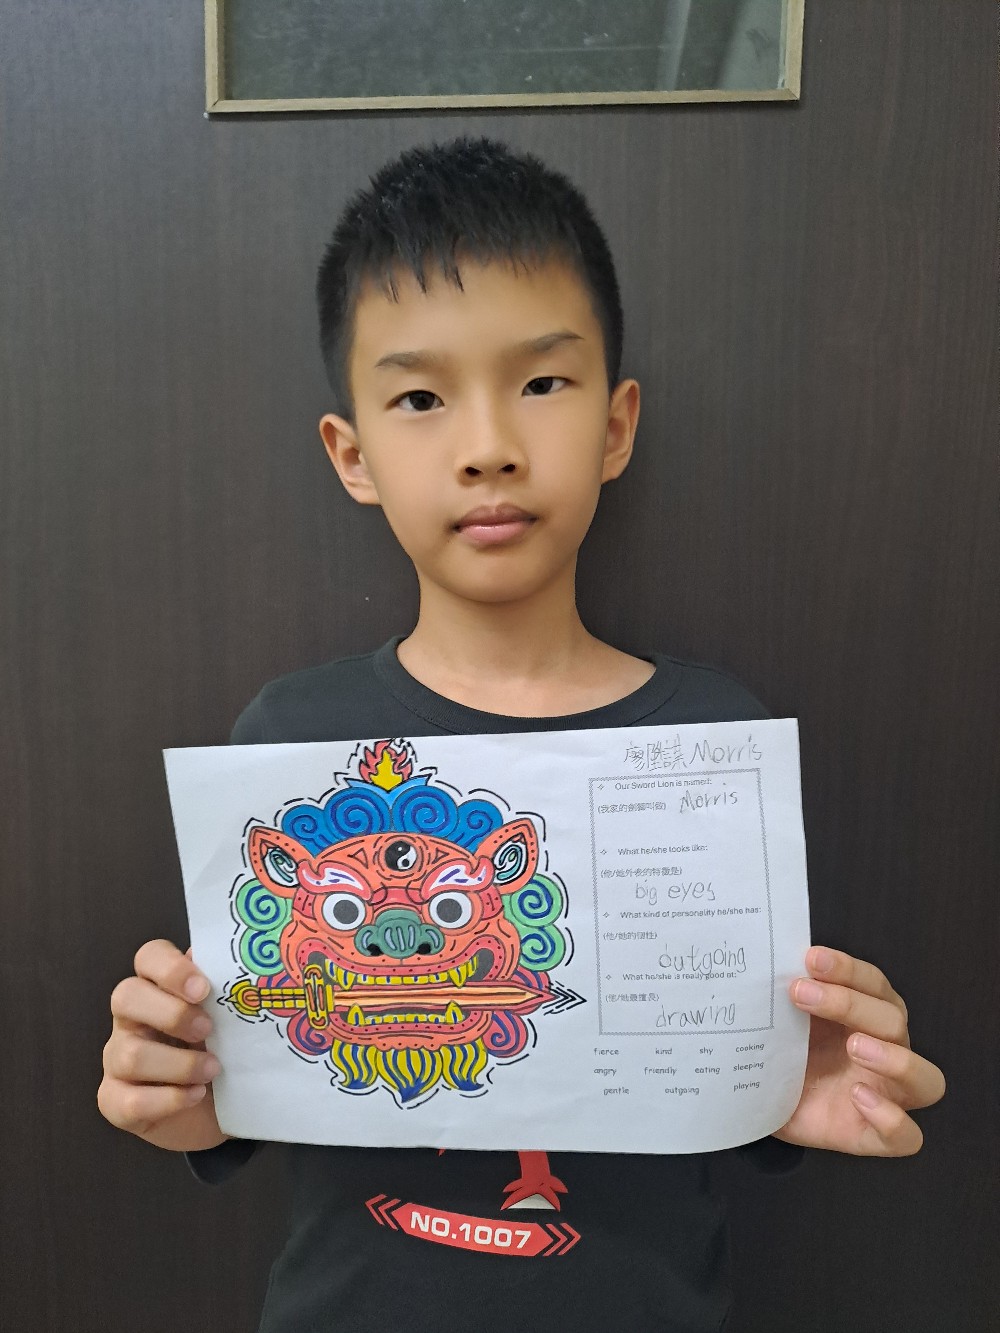 廖 Morris
✧ Our Sword Lion is named:
(我家的劍獅叫做) Morris
✧ What he/she looks like:
(他/她外表的特徵是)
big eyes
✧ What kind of personality he/she has:
(他/她的個性)
outgoing
✧ What he/she is really good at:
(他/她最擅長)
drawing
fierce kind shy cooking
angry friendly eating sleeping
gentle outgoing playing
NO.1007